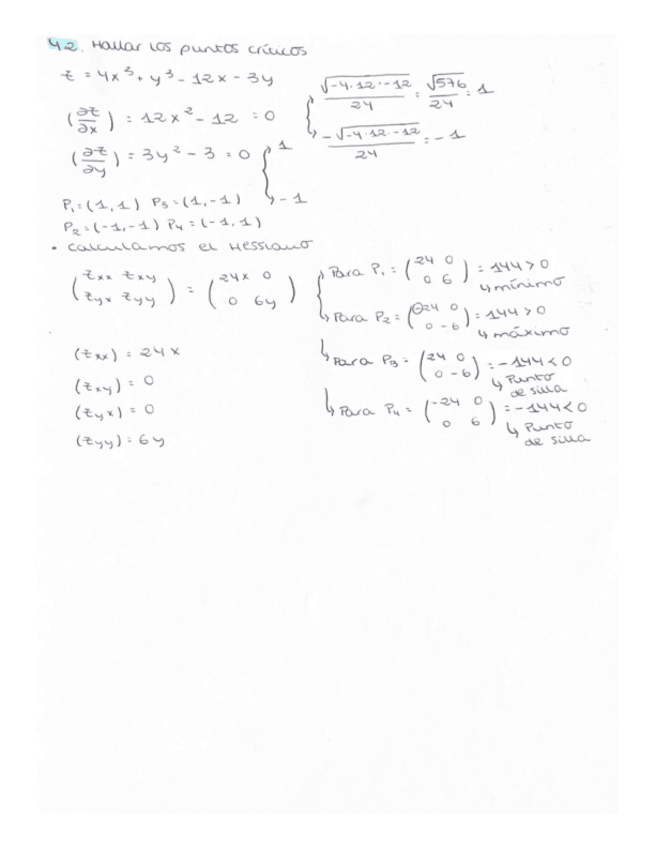 4.2. Hallar los puntos críticos
z = 4x³ + y³ - 12x - 3y
(∂z/∂x) = 12x² - 12 = 0
√(-4·12·-12)/24 = √576/24 = 1
-√(-4·12·-12)/24 = -1
(∂z/∂y) = 3y² - 3 = 0 { 1
-1
P₁=(1,1) P₃=(1,-1)
P₂=(-1,-1) P₄=(-1,1)
• calculamos el Hessiano
(zxx zxy
zyx zyy) = (24x 0
0 6y)
(zxx) = 24x
(zxy) = 0
(zyx) = 0
(zyy) = 6y
Para P₁ = (24 0
0 6) = 144 > 0
↳ mínimo
Para P₂ = (-24 0
0 -6) = 144 > 0
↳ máximo
Para P₃ = (24 0
0 -6) = -144 < 0
↳ Punto
de silla
Para P₄ = (-24 0
0 6) = -144 < 0
↳ Punto
de silla